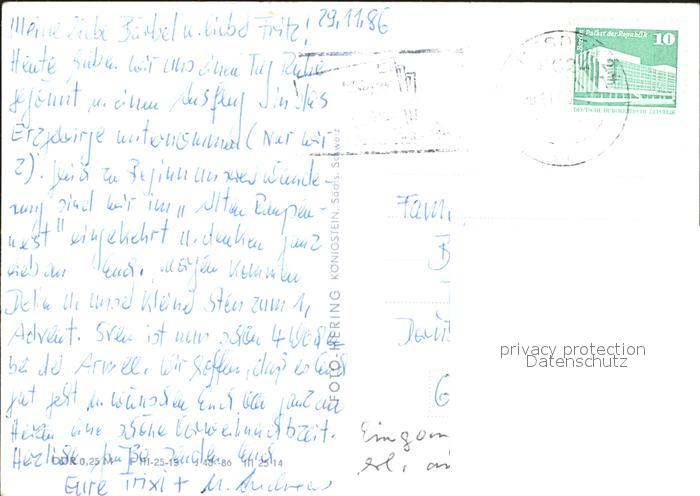 29.11.86
Meine liebe Bärbel u. liebe Fritz,
Heute haben wir uns einen Tag Ruhe
gegönnt u. einen Ausflug in das
Erzgebirge unternommen (Nur wir
2). Gleich zu Beginn unserer Wande-
rung sind wir im "Alten Raupen-
nest" eingekehrt u. denken ganz
lieb an Euch. Morgen kommen
u. unsere kleine zum 1.
Advent. Sven ist nun schon 4 Wochen
bei der Armee. Wir hoffen, daß es Euch
gut geht u. wünschen Euch von ganzem
Herzen eine schöne Vorweihnachtszeit.
Herzliche Grüße senden Euch
Eure Trixi + M. Andreas
DDR 0,25 M III-25-13 J 48-86 III 25 14
FOTO HERING KÖNIGSTEIN, Sächs. Schweiz
Palast der Republik
10
DEUTSCHE DEMOKRATISCHE REPUBLIK
Fam.
B
privacy protection
Datenschutz